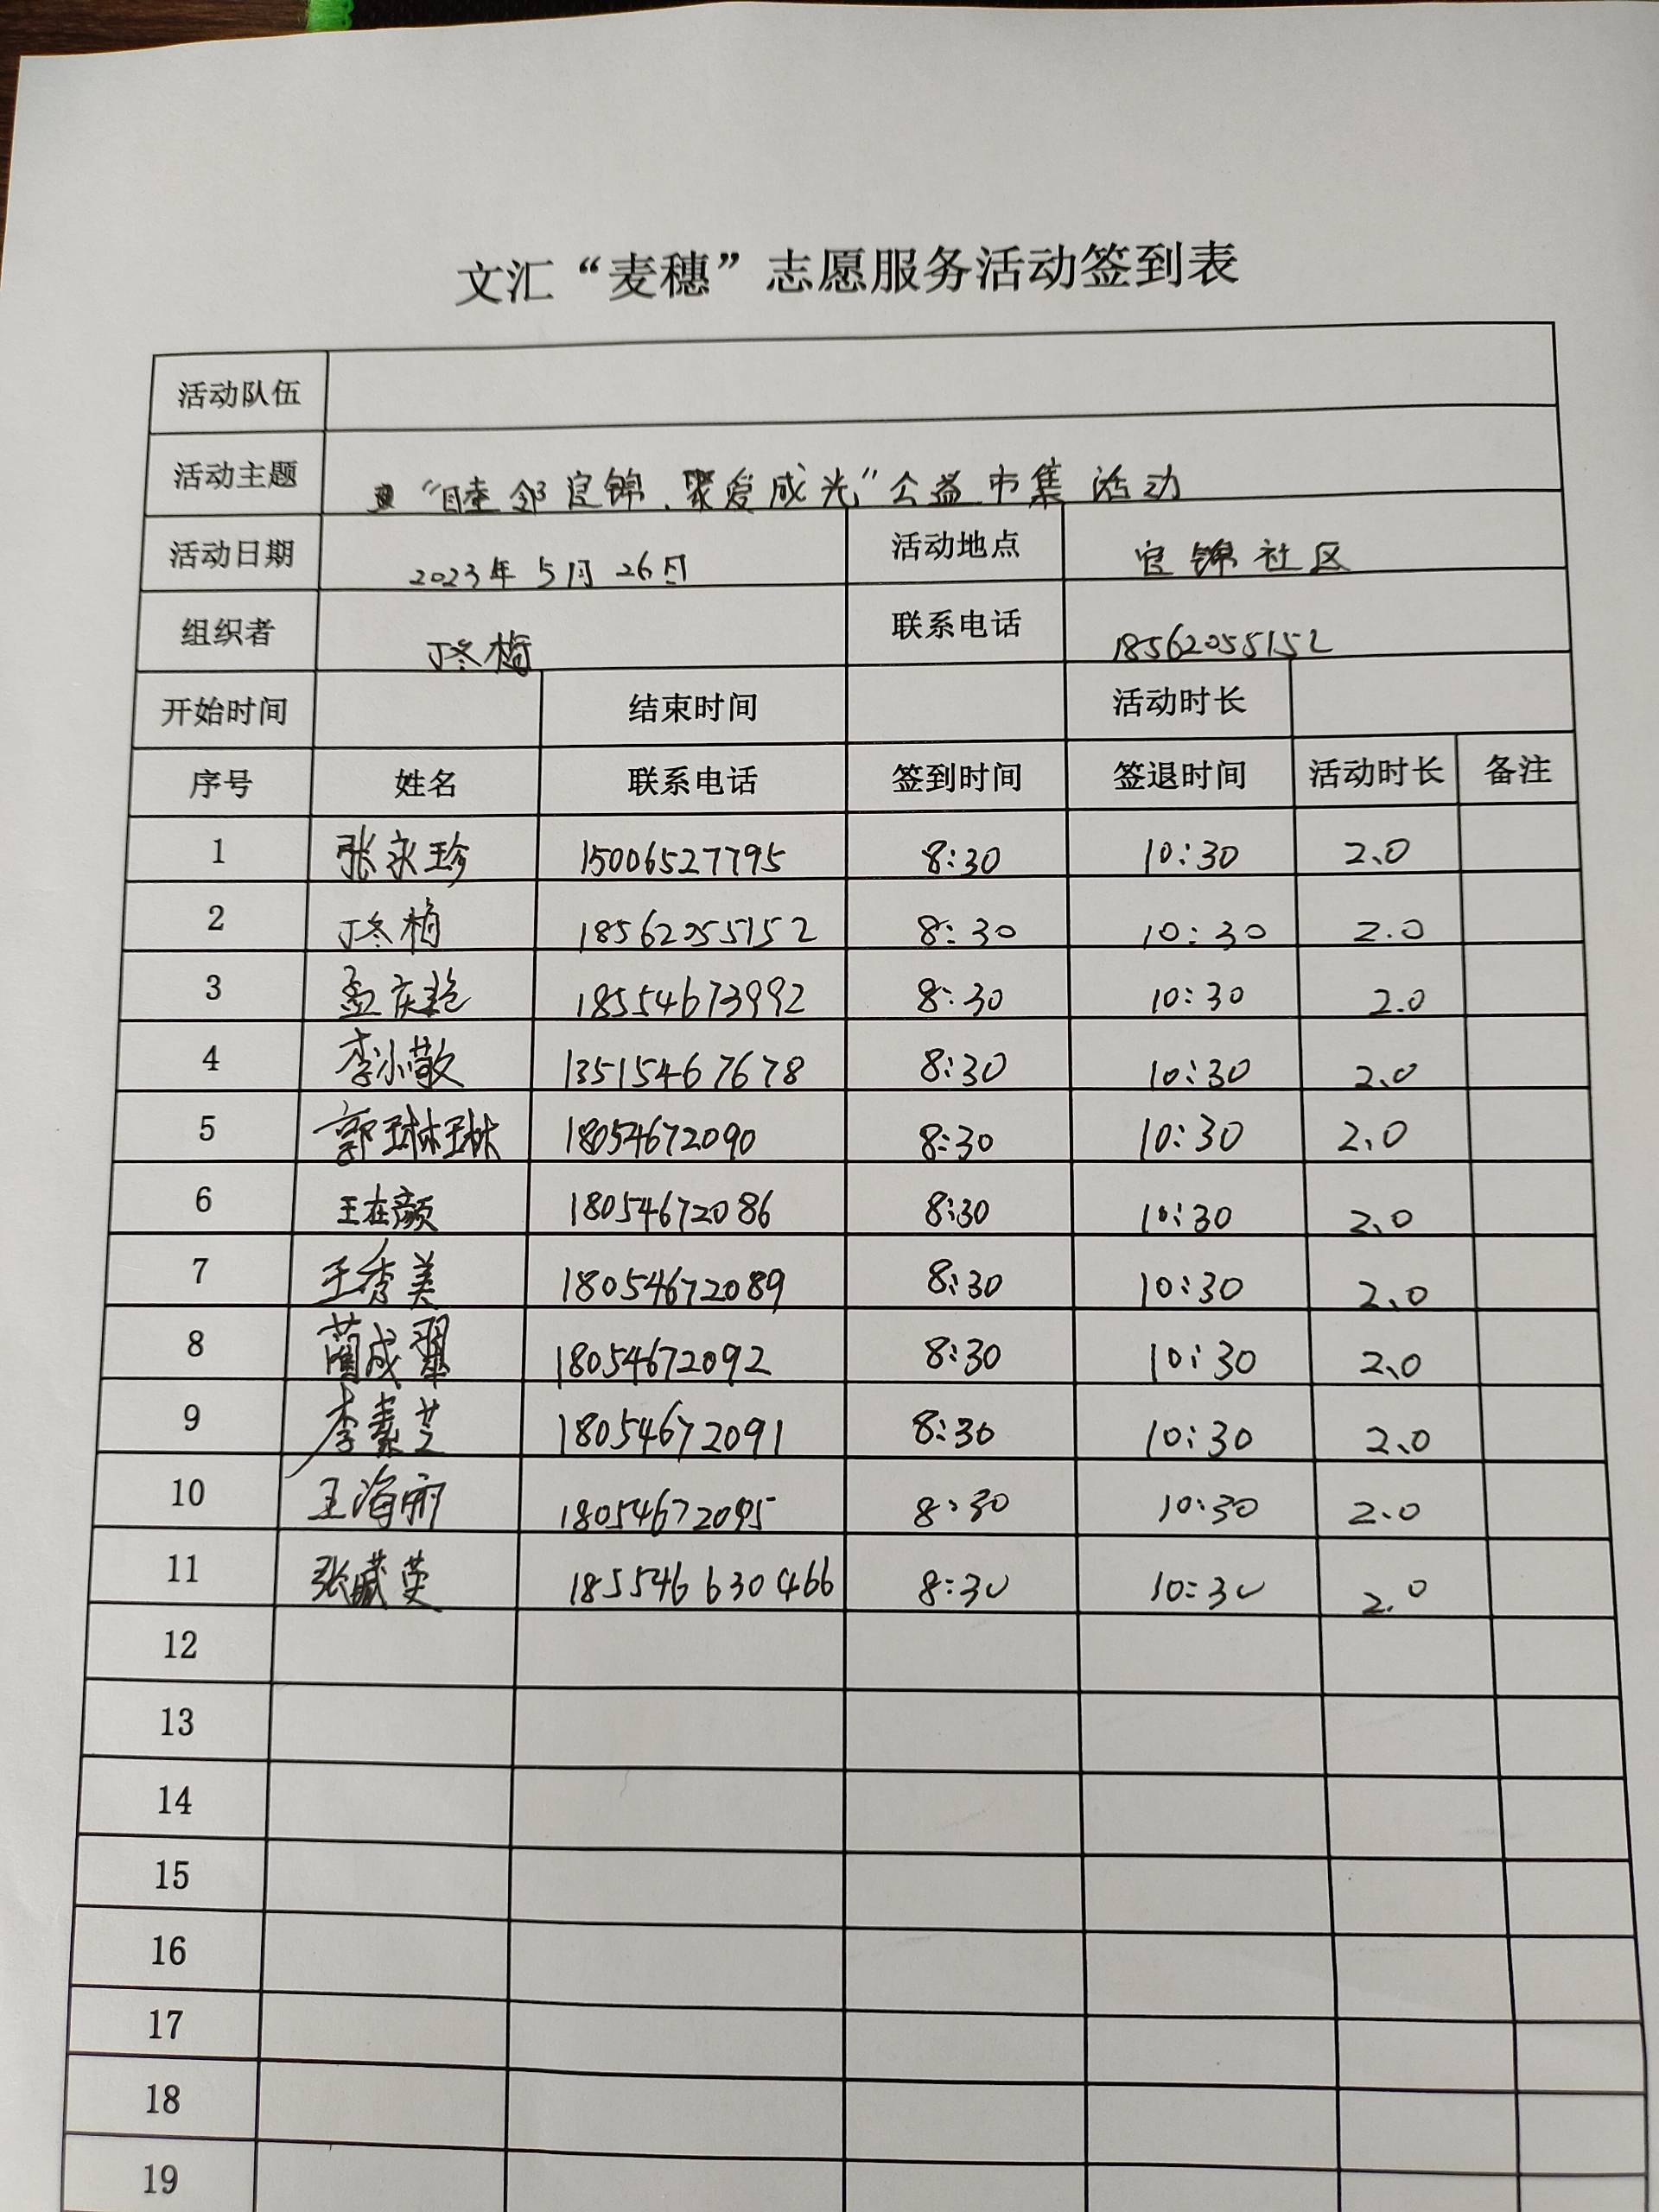 文汇“麦穗”志愿服务活动签到表
活动队伍
活动主题 “睦邻官锦、聚爱成光”公益市集活动
活动日期 2023年5月26日 活动地点 官锦社区
组织者 丁冬梅 联系电话 18562055152
开始时间 结束时间 活动时长
序号 姓名 联系电话 签到时间 签退时间 活动时长 备注
1 张永珍 15006527795 8:30 10:30 2.0
2 丁冬梅 18562055152 8:30 10:30 2.0
3 孟庆艳 18554673992 8:30 10:30 2.0
4 李小敬 13515467678 8:30 10:30 2.0
5 郭琳琳 18054672090 8:30 10:30 2.0
6 王在颜 18054672086 8:30 10:30 2.0
7 王秀美 18054672089 8:30 10:30 2.0
8 蔺成翠 18054672092 8:30 10:30 2.0
9 李素芝 18054672091 8:30 10:30 2.0
10 王海丽 18054672095 8:30 10:30 2.0
11 张英 185546630466 8:30 10:30 2.0
12
13
14
15
16
17
18
19